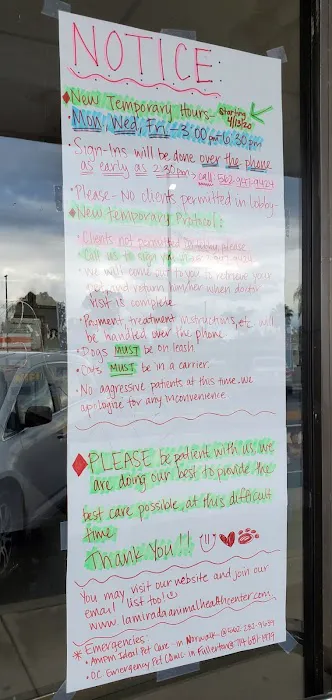 NOTICE:
New Temporary Hours- Starting 4/13/20
Mon, Wed, Fri - 3:00pm-6:30pm
Sign-Ins will be done over the phone
as early as 2:30pm > call: 562-947-9424
Please- No clients permitted in lobby
New temporary Protocol:
Clients not permitted in lobby please
Call us to sign in
We will come out to you to retrieve your
pet and return him/her when doctor
visit is complete
Payment, treatment instructions, etc. will
be handled over the phone
Dogs MUST be on leash
Cats MUST be in a carrier.
No aggressive patients at this time. We
apologize for any inconvenience
PLEASE be patient with us, we
are doing our best to provide the
best care possible, at this difficult
time
Thank You!!
You may visit our website and join our
email list too!
www.lamiradaanimalhealthcenter.com
* Emergencies:
AMPM Ideal Pet Care - in Norwalk @
OC Emergency Pet Clinic - in Fullerton @